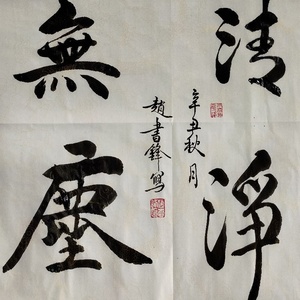 清淨
無塵
辛丑秋月
趙書鋒寫